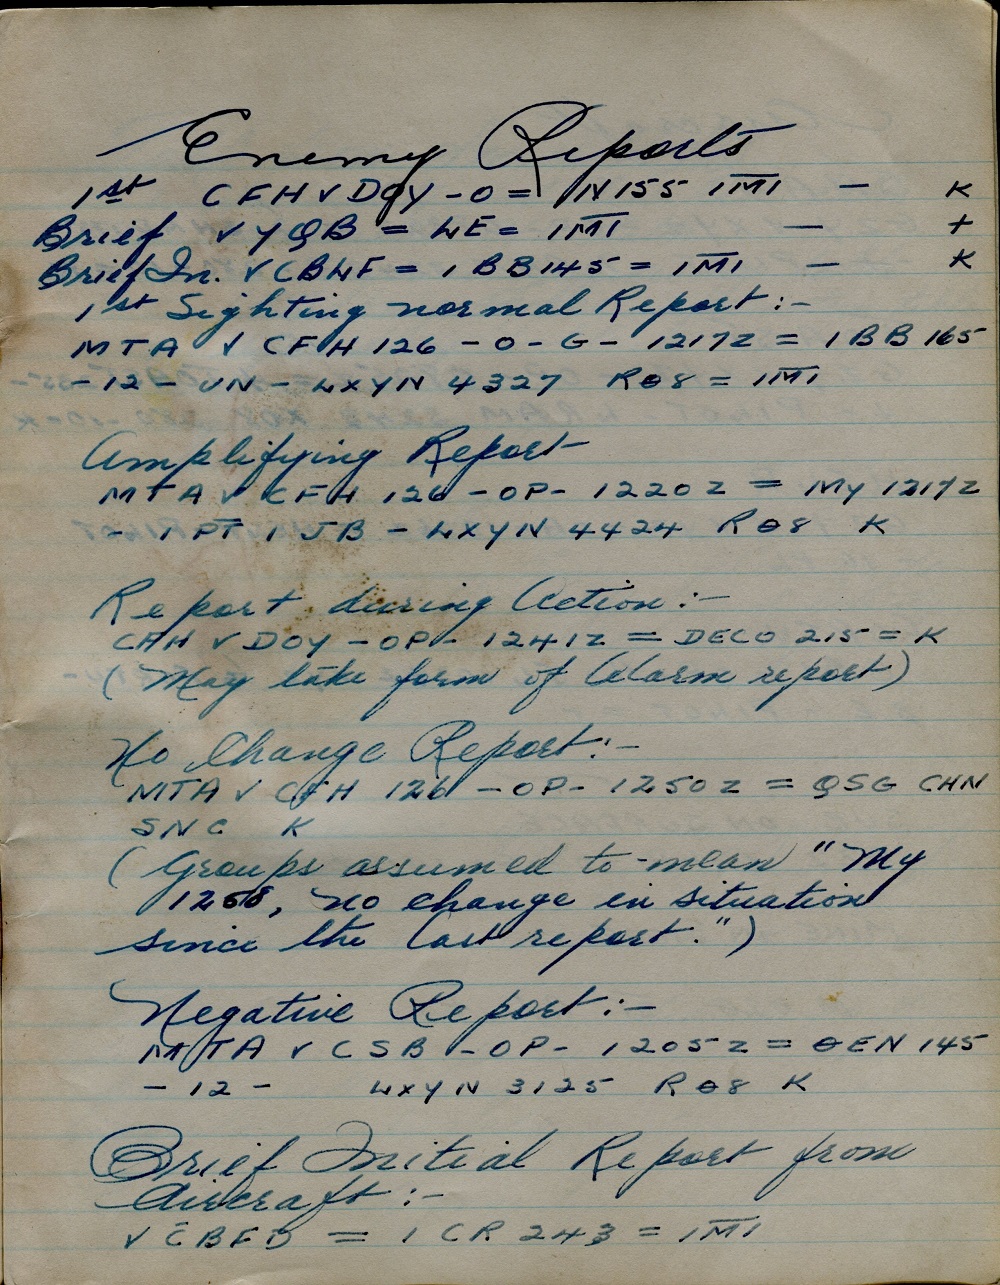 Enemy Reports
1st CFH V DOY - O = 1N155 I̅M̅I̅ — K
Brief V YQB = LE = I̅M̅I̅ — +
Brief In. V CBLF = 1 BB145 = I̅M̅I̅ — K
1st Sighting normal Report :-
MTA V CFH 126 - O - G - 1217Z = 1 BB 165
- 12 - UN - LXYN 4327 RΘ8 = I̅M̅I̅
Amplifying Report
MTA V CFH 126 - OP - 1220Z = My 1217Z
- 1 PT 1 JB - LXYN 4424 RΘ8 K
Report during Action :-
CFH V DOY - OP - 1241Z = DECO 215 = K
(May take form of Alarm report)
No Change Report :-
MTA V CFH 126 - OP - 1250Z = QSG CHN
SNC K
(Groups assumed to mean "My
, no change in situation
since the last report.")
Negative Report :-
MTA V CSB - OP - 1205Z = ΘEN 145
- 12 - LXYN 3125 RΘ8 K
Brief Initial Report from
Aircraft :-
V CBFD = 1 CR 243 = I̅M̅I̅